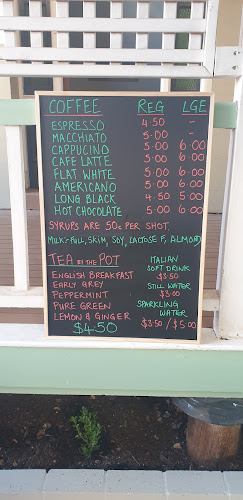 COFFEE REG LGE
ESPRESSO 4.50 -
MACCHIATO 5.00 -
CAPPUCINO 5.00 6.00
CAFE LATTE 5.00 6.00
FLAT WHITE 5.00 6.00
AMERICANO 5.00 6.00
LONG BLACK 4.50 5.00
HOT CHOCOLATE 5.00 6.00
SYRUPS ARE 50c PER SHOT
MILK:- FULL, SKIM, SOY, LACTOSE F, ALMOND
TEA BY THE POT
ENGLISH BREAKFAST
EARLY GREY
PEPPERMINT
PURE GREEN
LEMON & GINGER
$4.50
ITALIAN
SOFT DRINK
$3.50
STILL WATER
$3.00
SPARKLING
WATER
$3.50 / $5.00